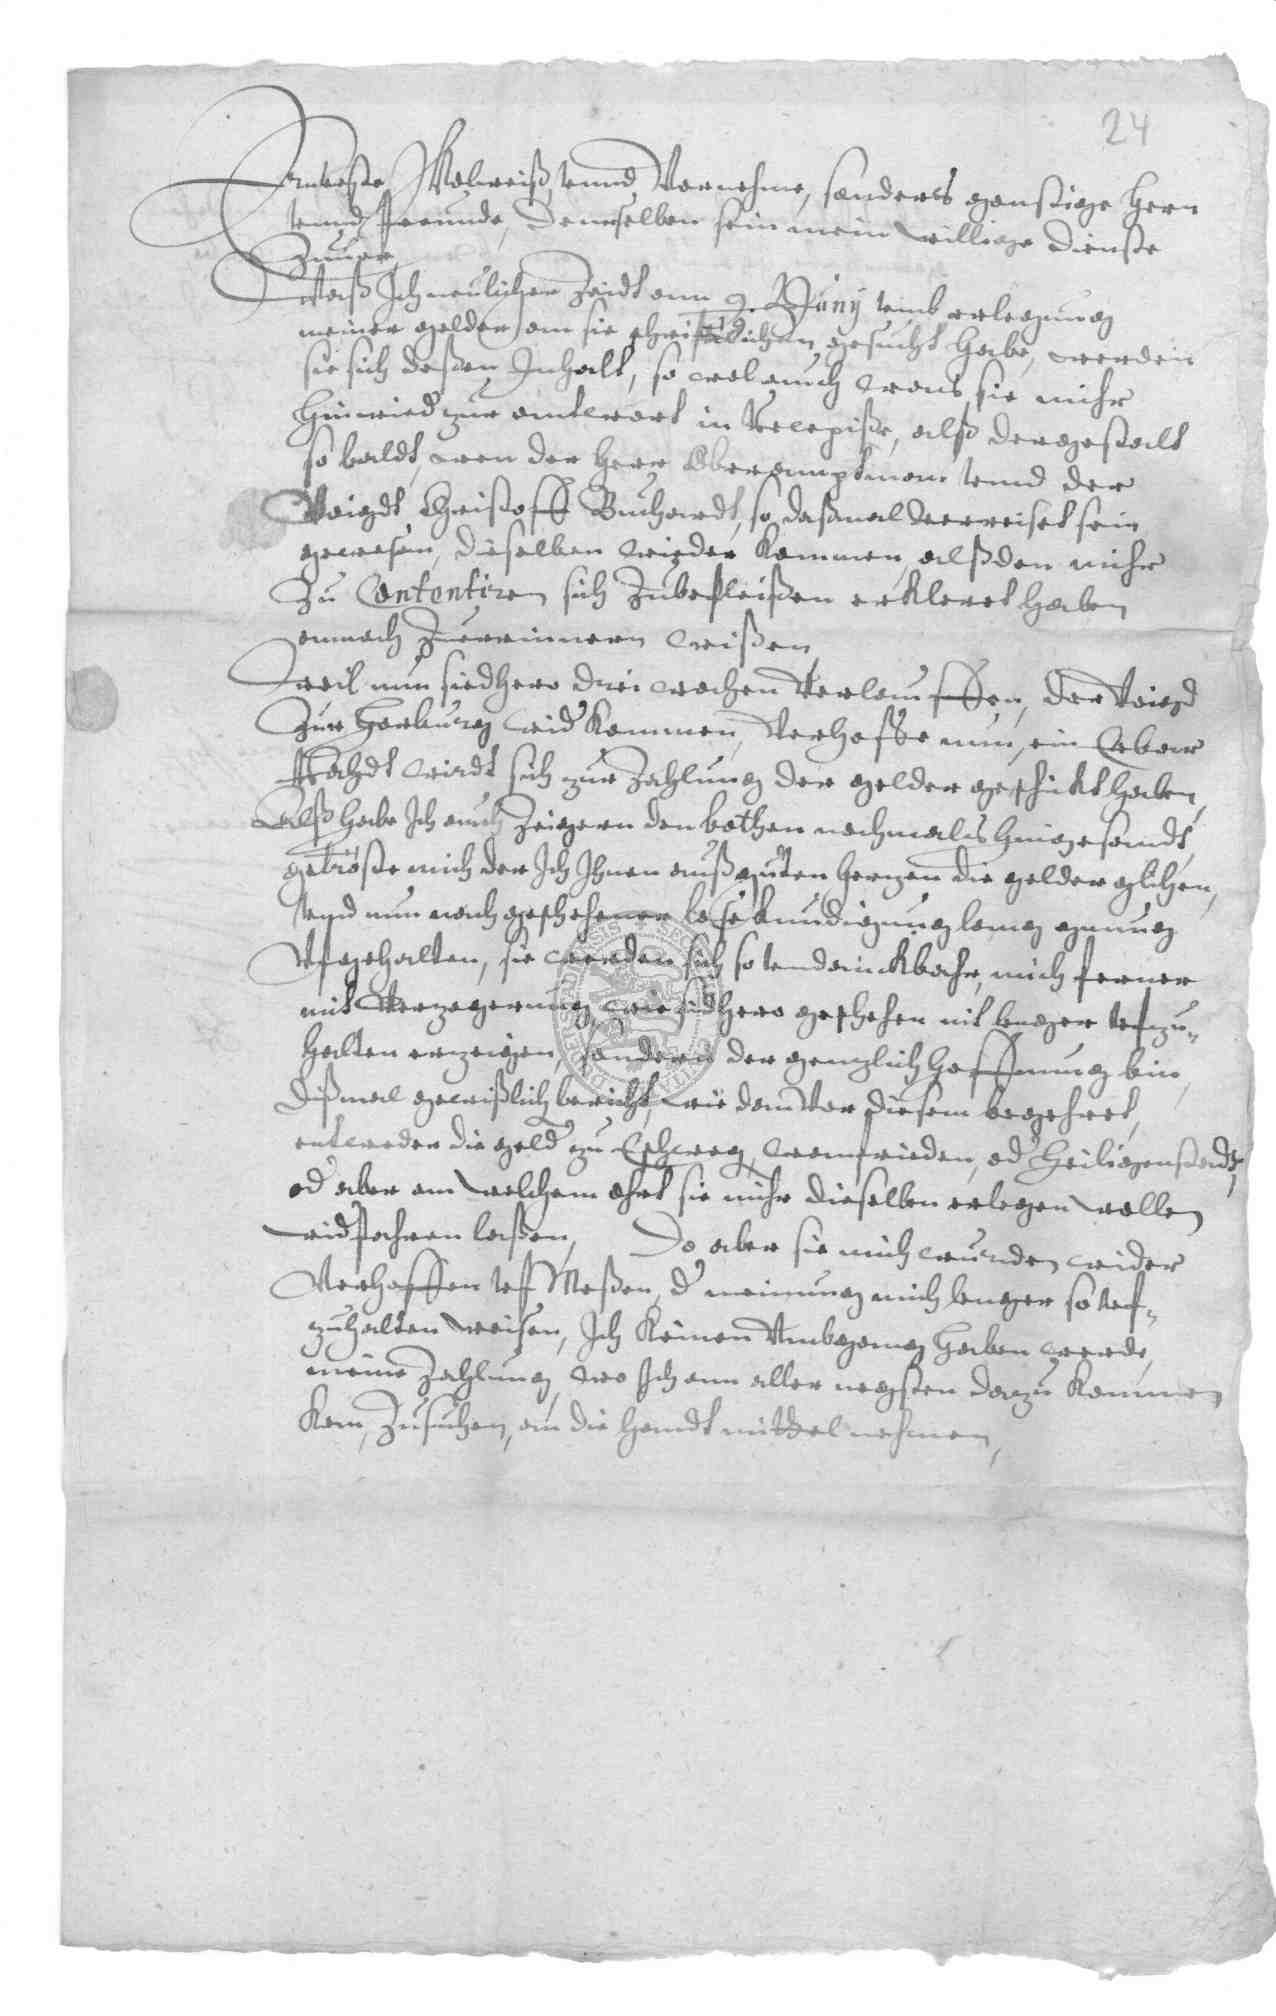 24
Ernveste Wolweiß vnnd Vornehme, sonders gonstige Hern
vnnd Freunde, Denselben sein mein willige Dienste
Zuuor,
Waß Ich neulicher Zeidt ann 9. Juny vmb erlegung
meiner gelder an sie schriftlichen gesucht habe, werden
sie sich deßen Inhalt, so wol auch was sie mihr
hinwied zur antwort in Recepisse, alß dergestalt
so baldt, wen der Herr Oberamptman vnnd der
Voigdt Christoff Buchardt, so daßmal verreiset sein
gewesen, dieselben wieder kommen, alßden mihr
zu Contentiren sich zubefleißen erkleret haben
annoch zuerinnern wißen
Weil nun siedhero drei wochen verlauffen, der Voigd
zur Harburg wid kommen, Verhoffe nun, ein Erbar
Rahdt wirdt sich zur Zahlung der gelder geschickt haben,
Alß habe Ich auch Zeigern den bothen nochmals hingesandt,
getröste mich der Ich Ihnen auß guten hertzen die gelder glihen,
vnd nun nach geschehener loskundigung lang genung
Vfgehalten, sie werden sich so vndanckbahr, mich ferner
mit Verzogerung wie sidhero geschehen nit lenger vfzu-
halten erzeigen, sondern der gentzlich Hoffnung bin,
dißmal gewißlich bericht, wie dan vor diesem begehret,
entweder die geld zu Eschweg, Wanfrieden, od Heiligenstadt,
od aber an welchem ohrt sie mihr dieselben erlegen wollen
widfahren laßen, Do aber sie mich wurden wider
Verhoffen vf Meßen, d meinung mich lenger so vf-
zuhalten weisen, Ich keinen Vmbgang haben werde,
meine Zahlung, wo Ich am aller negsten dazu kommen
kan, zusuchen, an die handt mittel nehmen,